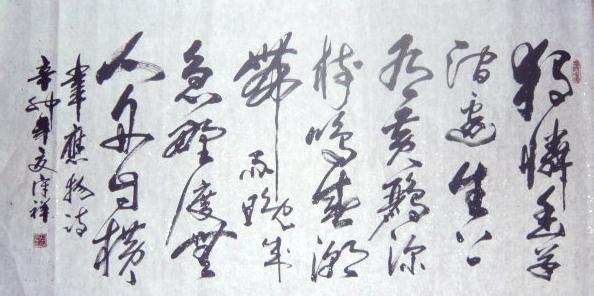 獨憐幽草
澗邊生上
有黃鸝深
樹鳴春潮
帶雨晚来
急野渡無
人舟自橫
韋應物诗
辛卯年 祥